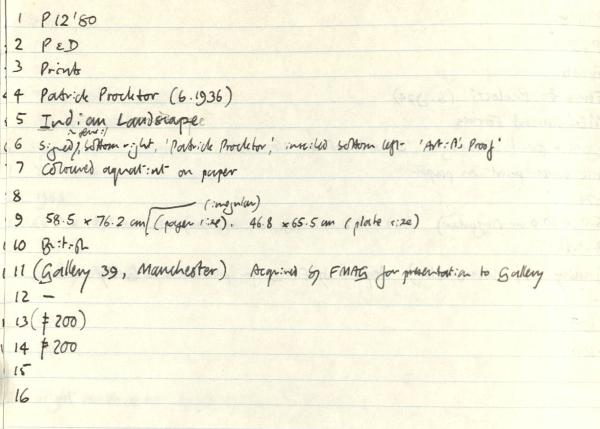 1 P12'80
2 P & D
3 Prints
4 Patrick Procktor (b.1936)
5 Indian Landscape
in pencil
6 Signed, bottom right, 'Patrick Procktor,' inscribed bottom left 'Artist's Proof'
7 Coloured aquatint on paper
8
(irregular)
9 58.5 x 76.2 cm (paper size). 46.8 x 65.5 cm (plate size)
10 British
11 (Gallery 39, Manchester) Acquired by FMAG for presentation to Gallery
12 –
13 (£200)
14 £200
15
16